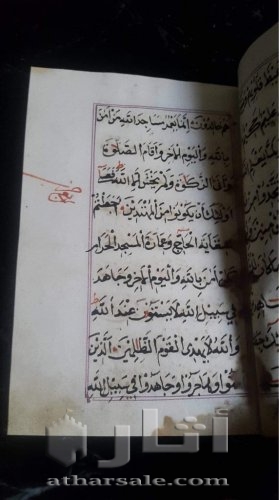 هم خالدون انما يعمر مساجد الله من امن
بالله واليوم الاخر واقام الصلوة
واتى الزكوة ولم يخش الا الله فعسى
اولئك ان يكونوا من المهتدين اجعلتم
سقاية الحاج وعمارة المسجد الحرام
كمن امن بالله واليوم الاخر وجاهد
في سبيل الله لا يستوون عند الله
والله لا يهدى القوم الظالمين الذين
امنوا وهاجروا وجاهدوا في سبيل الله
أثارة
atharsale.com